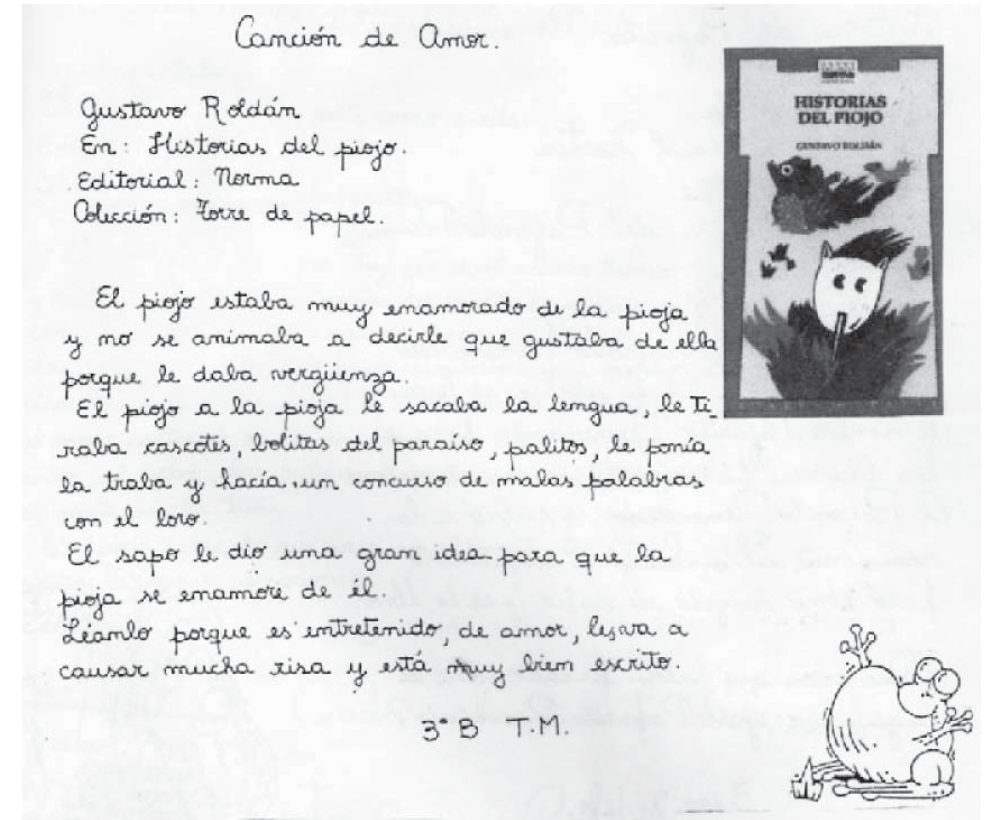 Canción de Amor.
HISTORIAS
DEL PIOJO
GUSTAVO ROLDÁN
Gustavo Roldán
En: Historias del piojo.
Editorial: Norma
Colección: Torre de papel.
El piojo estaba muy enamorado de la pioja
y no se animaba a decirle que gustaba de ella
porque le daba vergüenza.
El piojo a la pioja le sacaba la lengua, le ti_
raba cascotes, bolitas del paraíso, palitos, le ponía
la traba y hacía un concurso de malas palabras
con el loro.
El sapo le dio una gran idea para que la
pioja se enamore de él.
Léanlo porque es entretenido, de amor, les va a
causar mucha risa y está muy bien escrito.
3° B T.M.